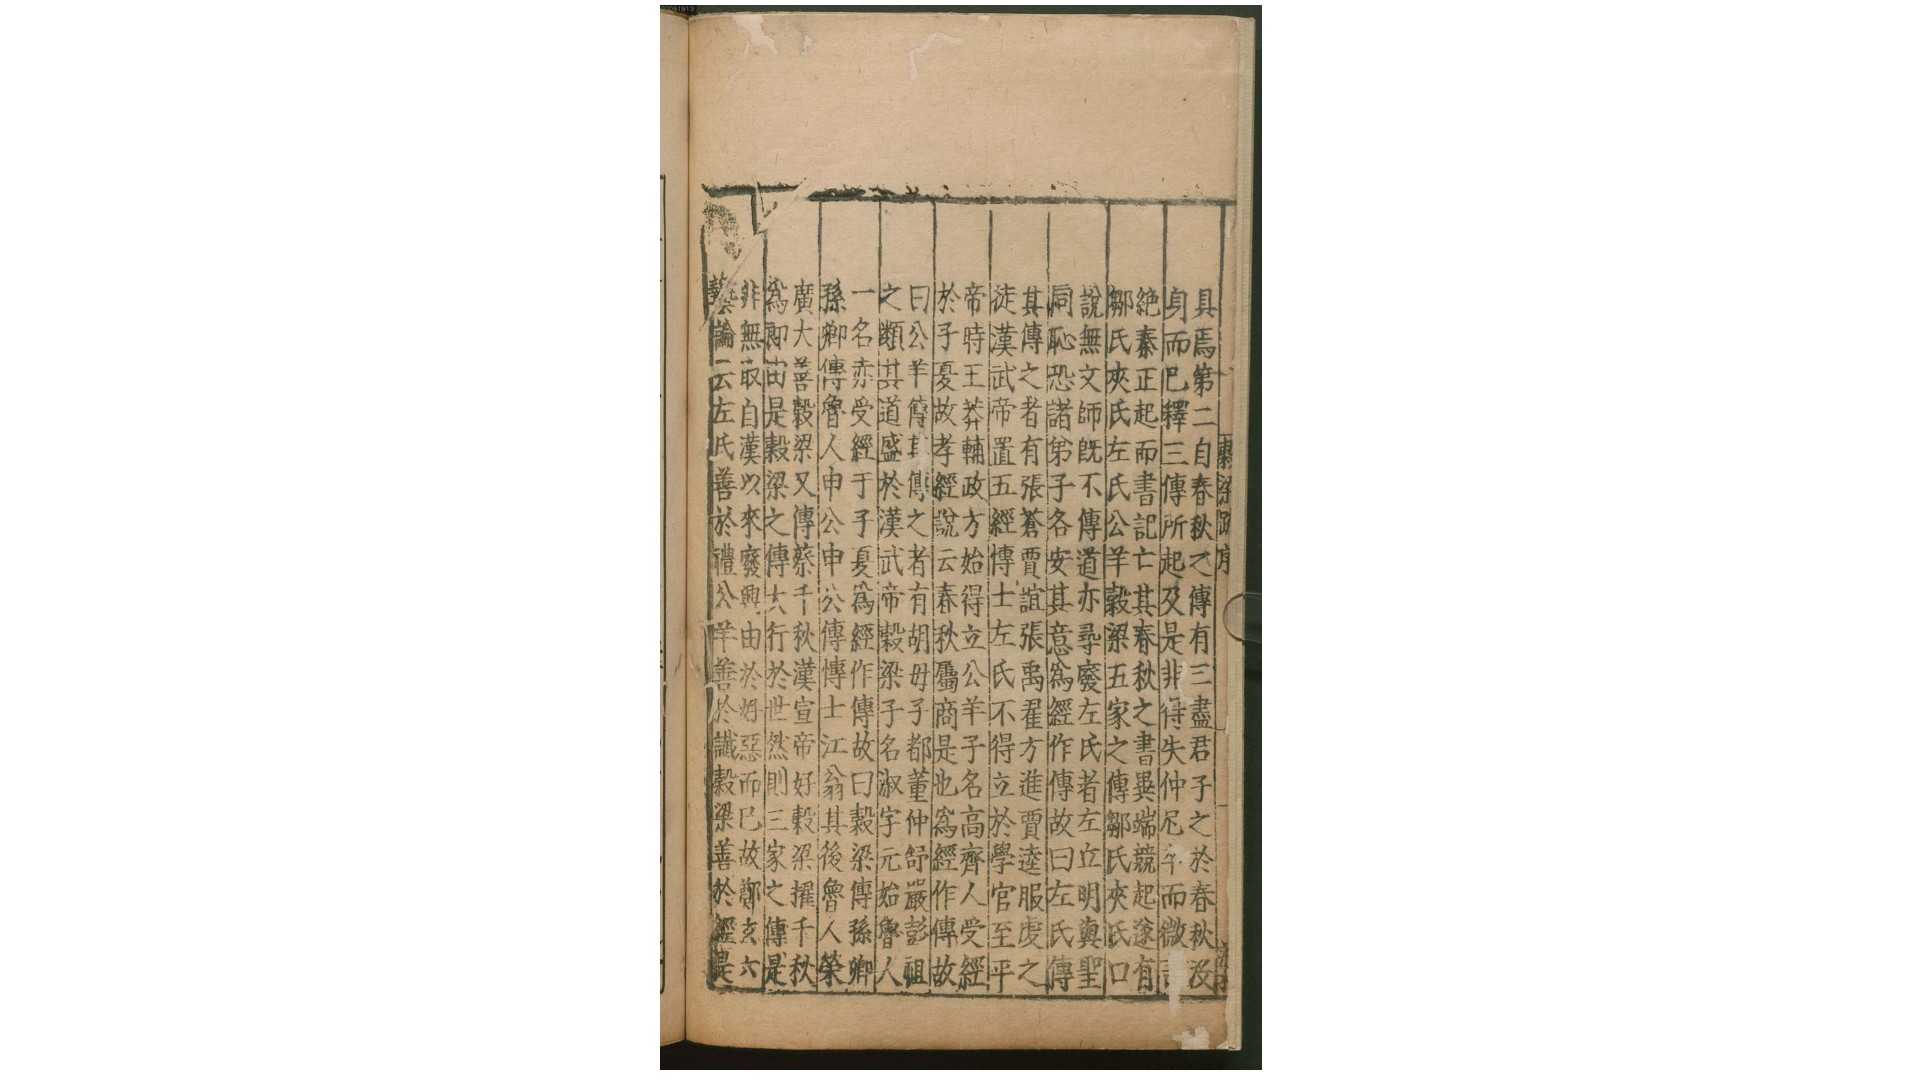 具焉第二自春秋之傳有三盡君子之於春秋没
身而巳釋三傳所起及是非得失仲尼卒而微言
絶秦正起而書記亡其春秋之書異端競起遂有
鄒氏夾氏左氏公羊穀梁五家之傳鄒氏夾氏口
說無文師旣不傳道亦尋廢左氏者左丘明與聖
同恥恐諸弟子各安其意爲經作傳故曰左氏傳
其傳之者有張蒼賈誼張禹翟方進賈逵服虔之
徒漢武帝置五經博士左氏不得立於學官至平
帝時王莽輔政方始得立公羊子名高齊人受經
於子夏故孝經說云春秋屬商是也爲經作傳故
曰公羊傳其傳之者有胡毋子都董仲舒嚴彭祖
之類其道盛於漢武帝穀梁子名淑字元始魯人
一名赤受經于子夏爲經作傳故曰穀梁傳孫卿
孫卿傳魯人申公申公傳博士江翁其後魯人榮
廣大善穀梁又傳蔡千秋漢宣帝好穀梁擢千秋
爲郎由是穀梁之傳大行於世然則三家之傳是
非無取自漢以來廢興由於好惡而巳故鄭玄六
藝論云左氏善於禮公羊善於讖穀梁善於經是
穀梁疏序